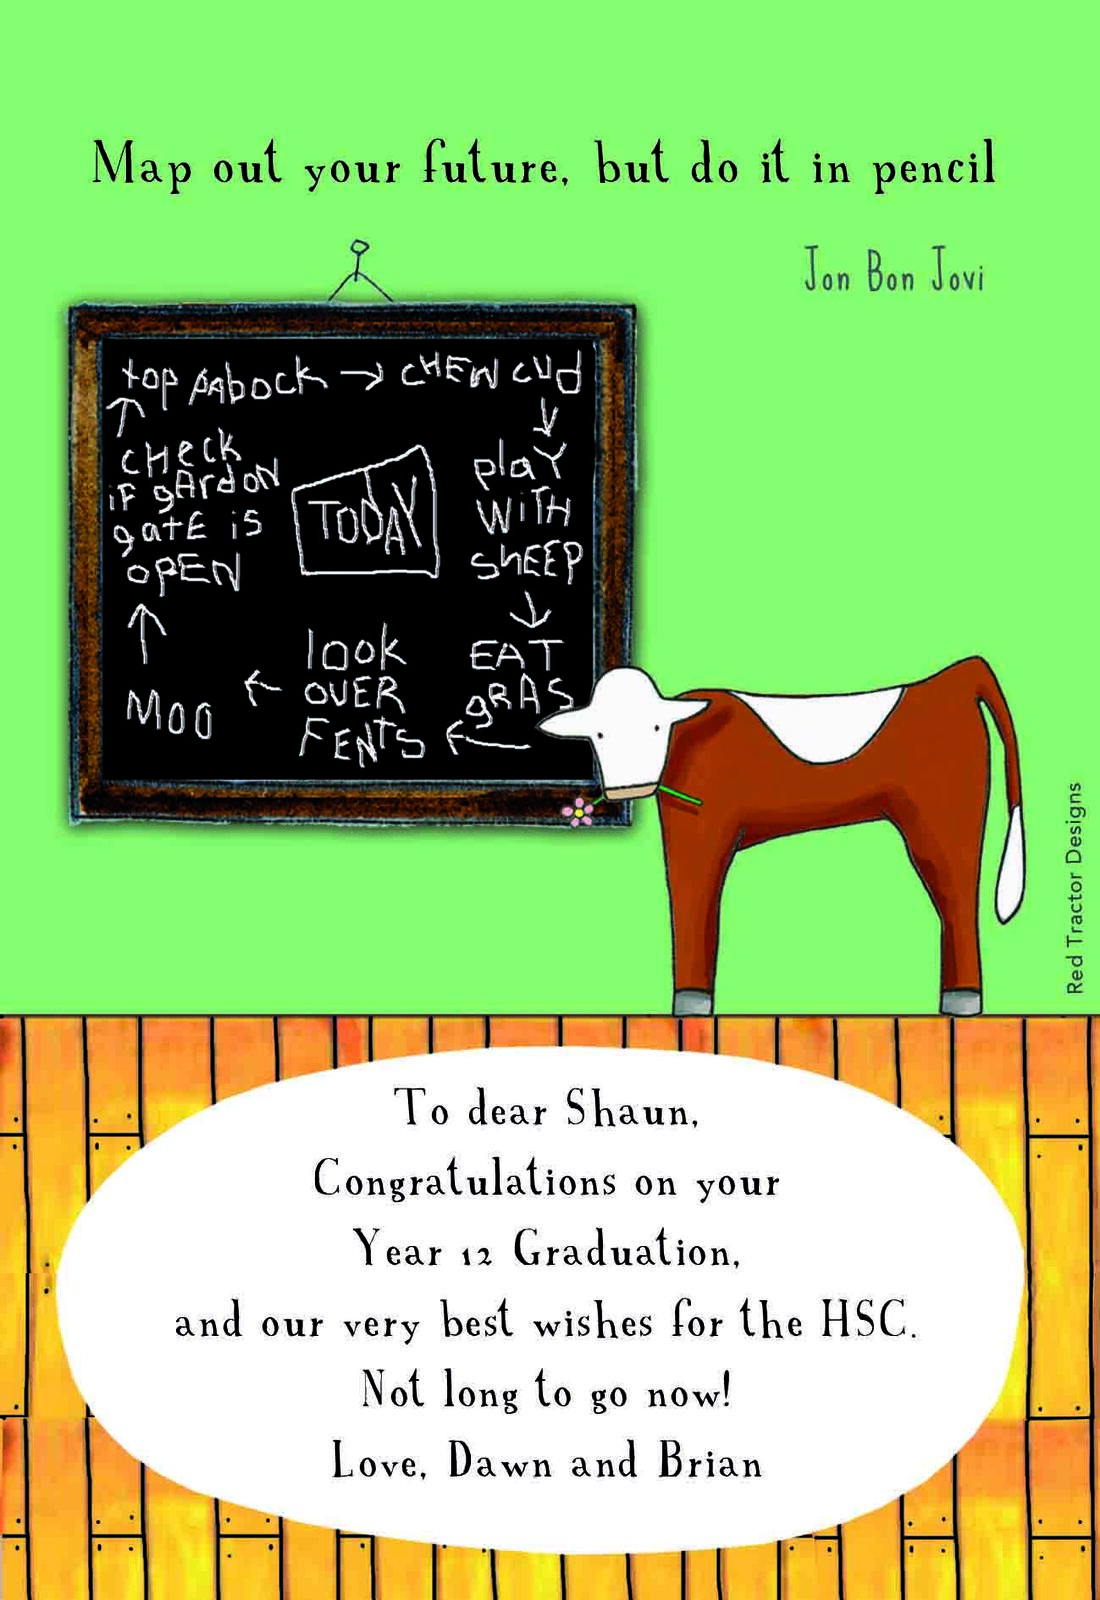 Map out your future, but do it in pencil
Jon Bon Jovi
top pabock → CHEW cud
↓
play
WiTH
SHEEP
↓
EAT
gRAS
←
look
OVER
FENTS
←
MOO
↑
CHeck
iF gArdoN
gatE is
OPEN
↑
TODAY
Red Tractor Designs
To dear Shaun,
Congratulations on your
Year 12 Graduation,
and our very best wishes for the HSC.
Not long to go now!
Love, Dawn and Brian